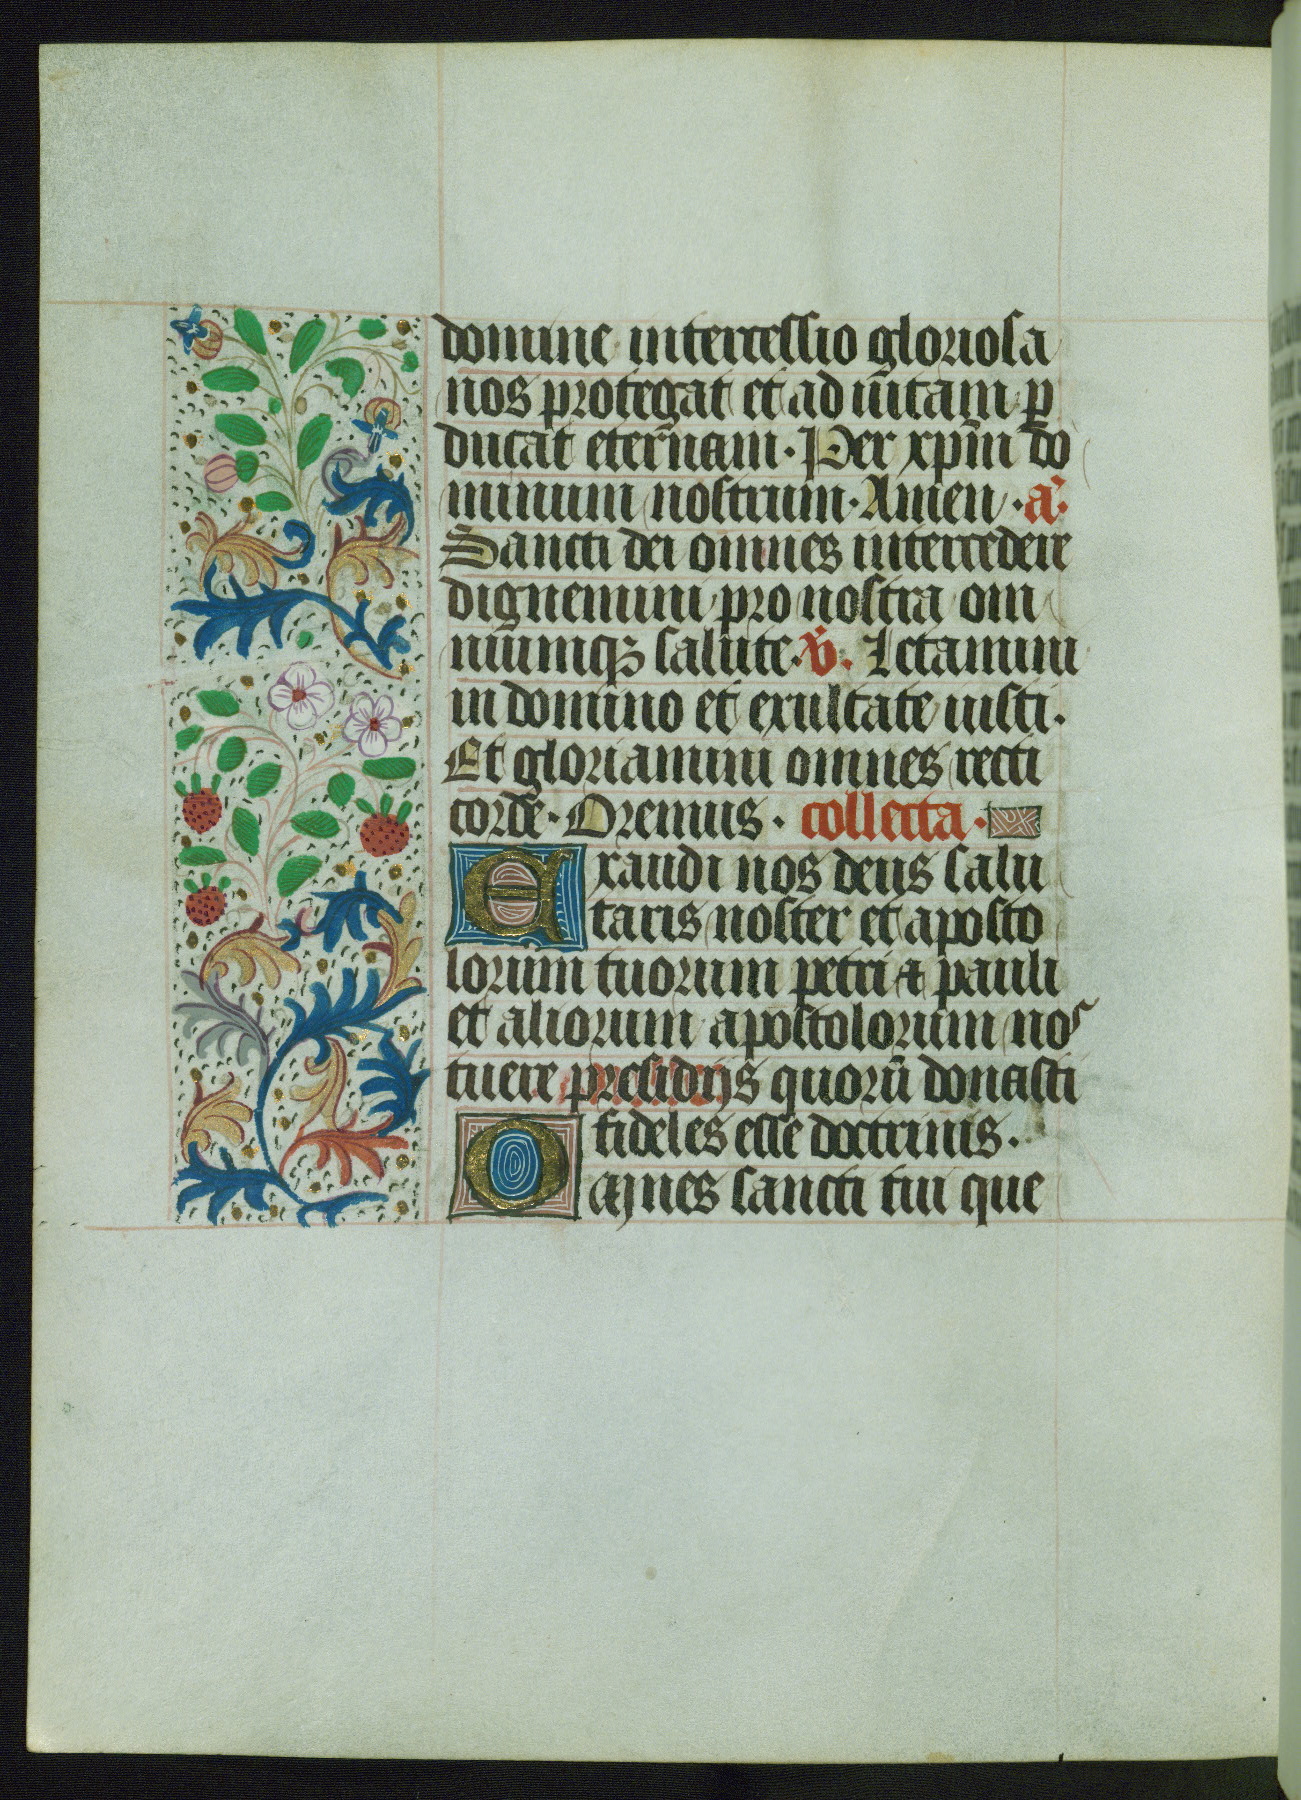 domine intercessio gloriosa
nos protegat et ad uitam p
ducat eternam. Per xpm̄ do
minum nostrum. Amen. a.
Sancti dei omnes intercedere
dignemini pro nostra om
niumqꝫ salute. v̄. Letamini
in domino et exultate iusti.
Et gloriamini omnes recti
corde. Oremus. collecta.
Exaudi nos deus salu
taris noster et aposto
lorum tuorum petri ⁊ pauli
et aliorum apostolorum nos
tuere presidijs quorū donasti
fideles esse doctrinis.
Omnes sancti tui que